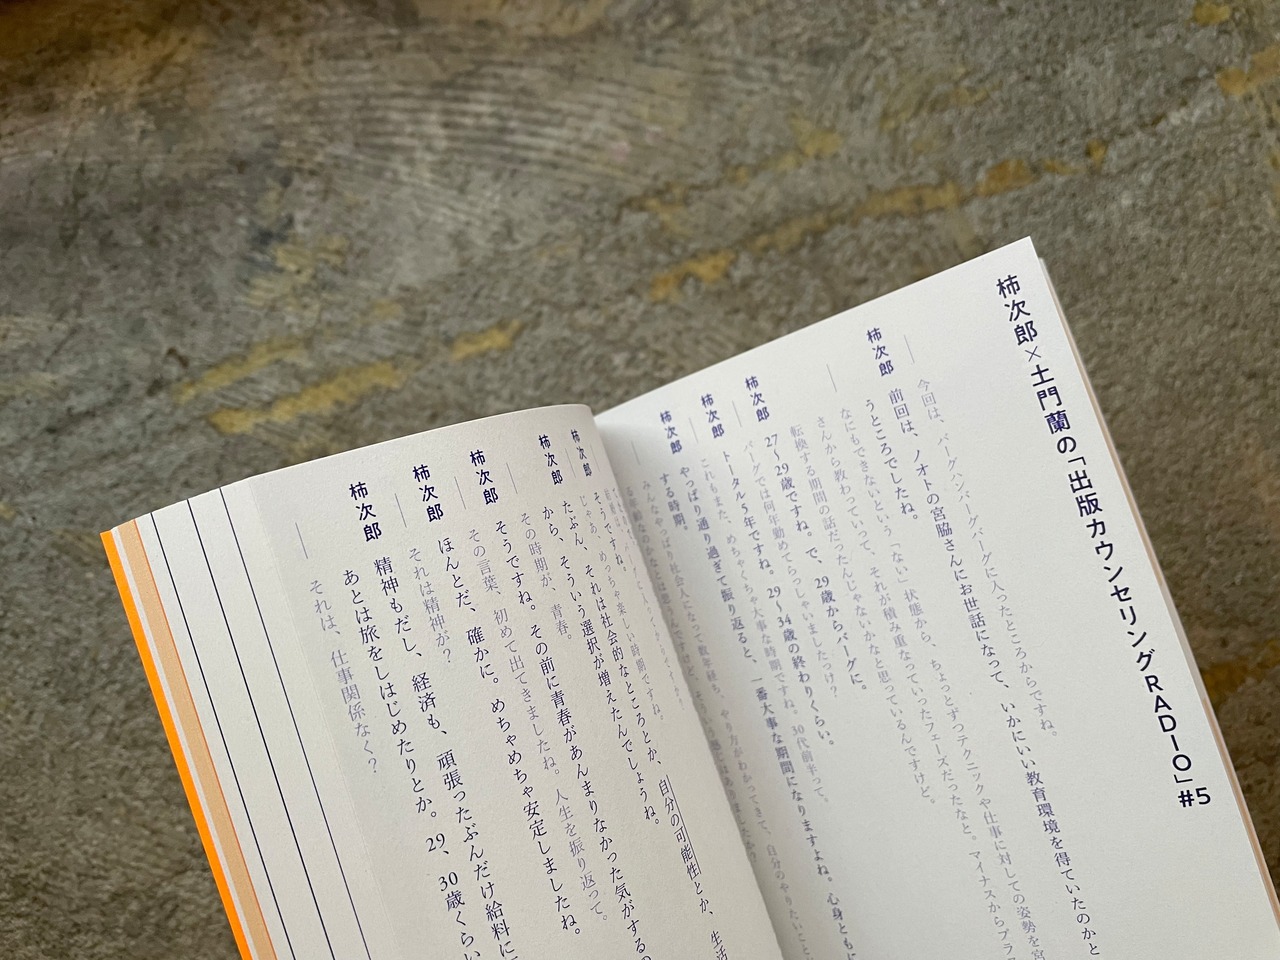 柿次郎×土門蘭の「出版カウンセリングRADIO」#5
── 今回は、バーグハンバーグバーグに入ったところからですね。
柿次郎 前回は、ノオトの宮脇さんにお世話になって、いかにいい教育環境を得ていたのかと
うところでしたね。
── なにもできないという「ない」状態から、ちょっとずつテクニックや仕事に対しての姿勢を宮
さんから教わっていって、それが積み重なっていったフェーズだったなと。マイナスからプラ
転換する期間の話だったんじゃないかなと思っているんですけど。
柿次郎 27〜29歳ですね。で、29歳からバーグに。
── バーグでは何年勤めてらっしゃいましたっけ?
柿次郎 トータル5年ですね。29〜34歳の終わりくらい。
── これもまた、めちゃくちゃ大事な時期ですね。30代前半って。
柿次郎 やっぱり通り過ぎて振り返ると、一番大事な期間になりますよね。心身ともに
する時期。
── みんなやっぱり社会人になって数年経ち、やり方がわかってきて、自分のやりたいこと
柿次郎 そうですね。
── じゃあ、めっちゃ楽しい時期ですね。
柿次郎 たぶん、それは社会的なところとか、自分の可能性とか、生活
から、そういう選択が増えたんでしょうね。
── その時期が、青春。
柿次郎 そうですね。その前に青春があんまりなかった気がするの
── その言葉、初めて出てきましたね。人生を振り返って。
柿次郎 ほんとだ、確かに。めちゃめちゃ安定しましたね。
── それは精神が?
柿次郎 精神もだし、経済も、頑張ったぶんだけ給料に
あとは旅をしはじめたりとか。29、30歳くらい
── それは、仕事関係なく?